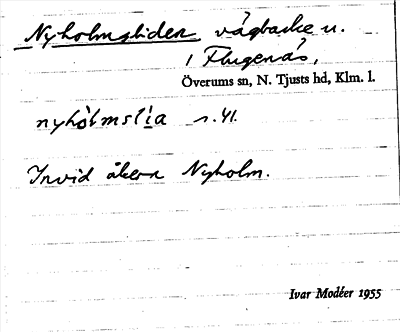 Nyholmsliden vägbacke u.
i Flugenäs,
Överums sn, N. Tjusts hd, Klm. l.
nyhòlmslìa r. 41.
Invid åkern Nyholm.
Ivar Modéer 1955